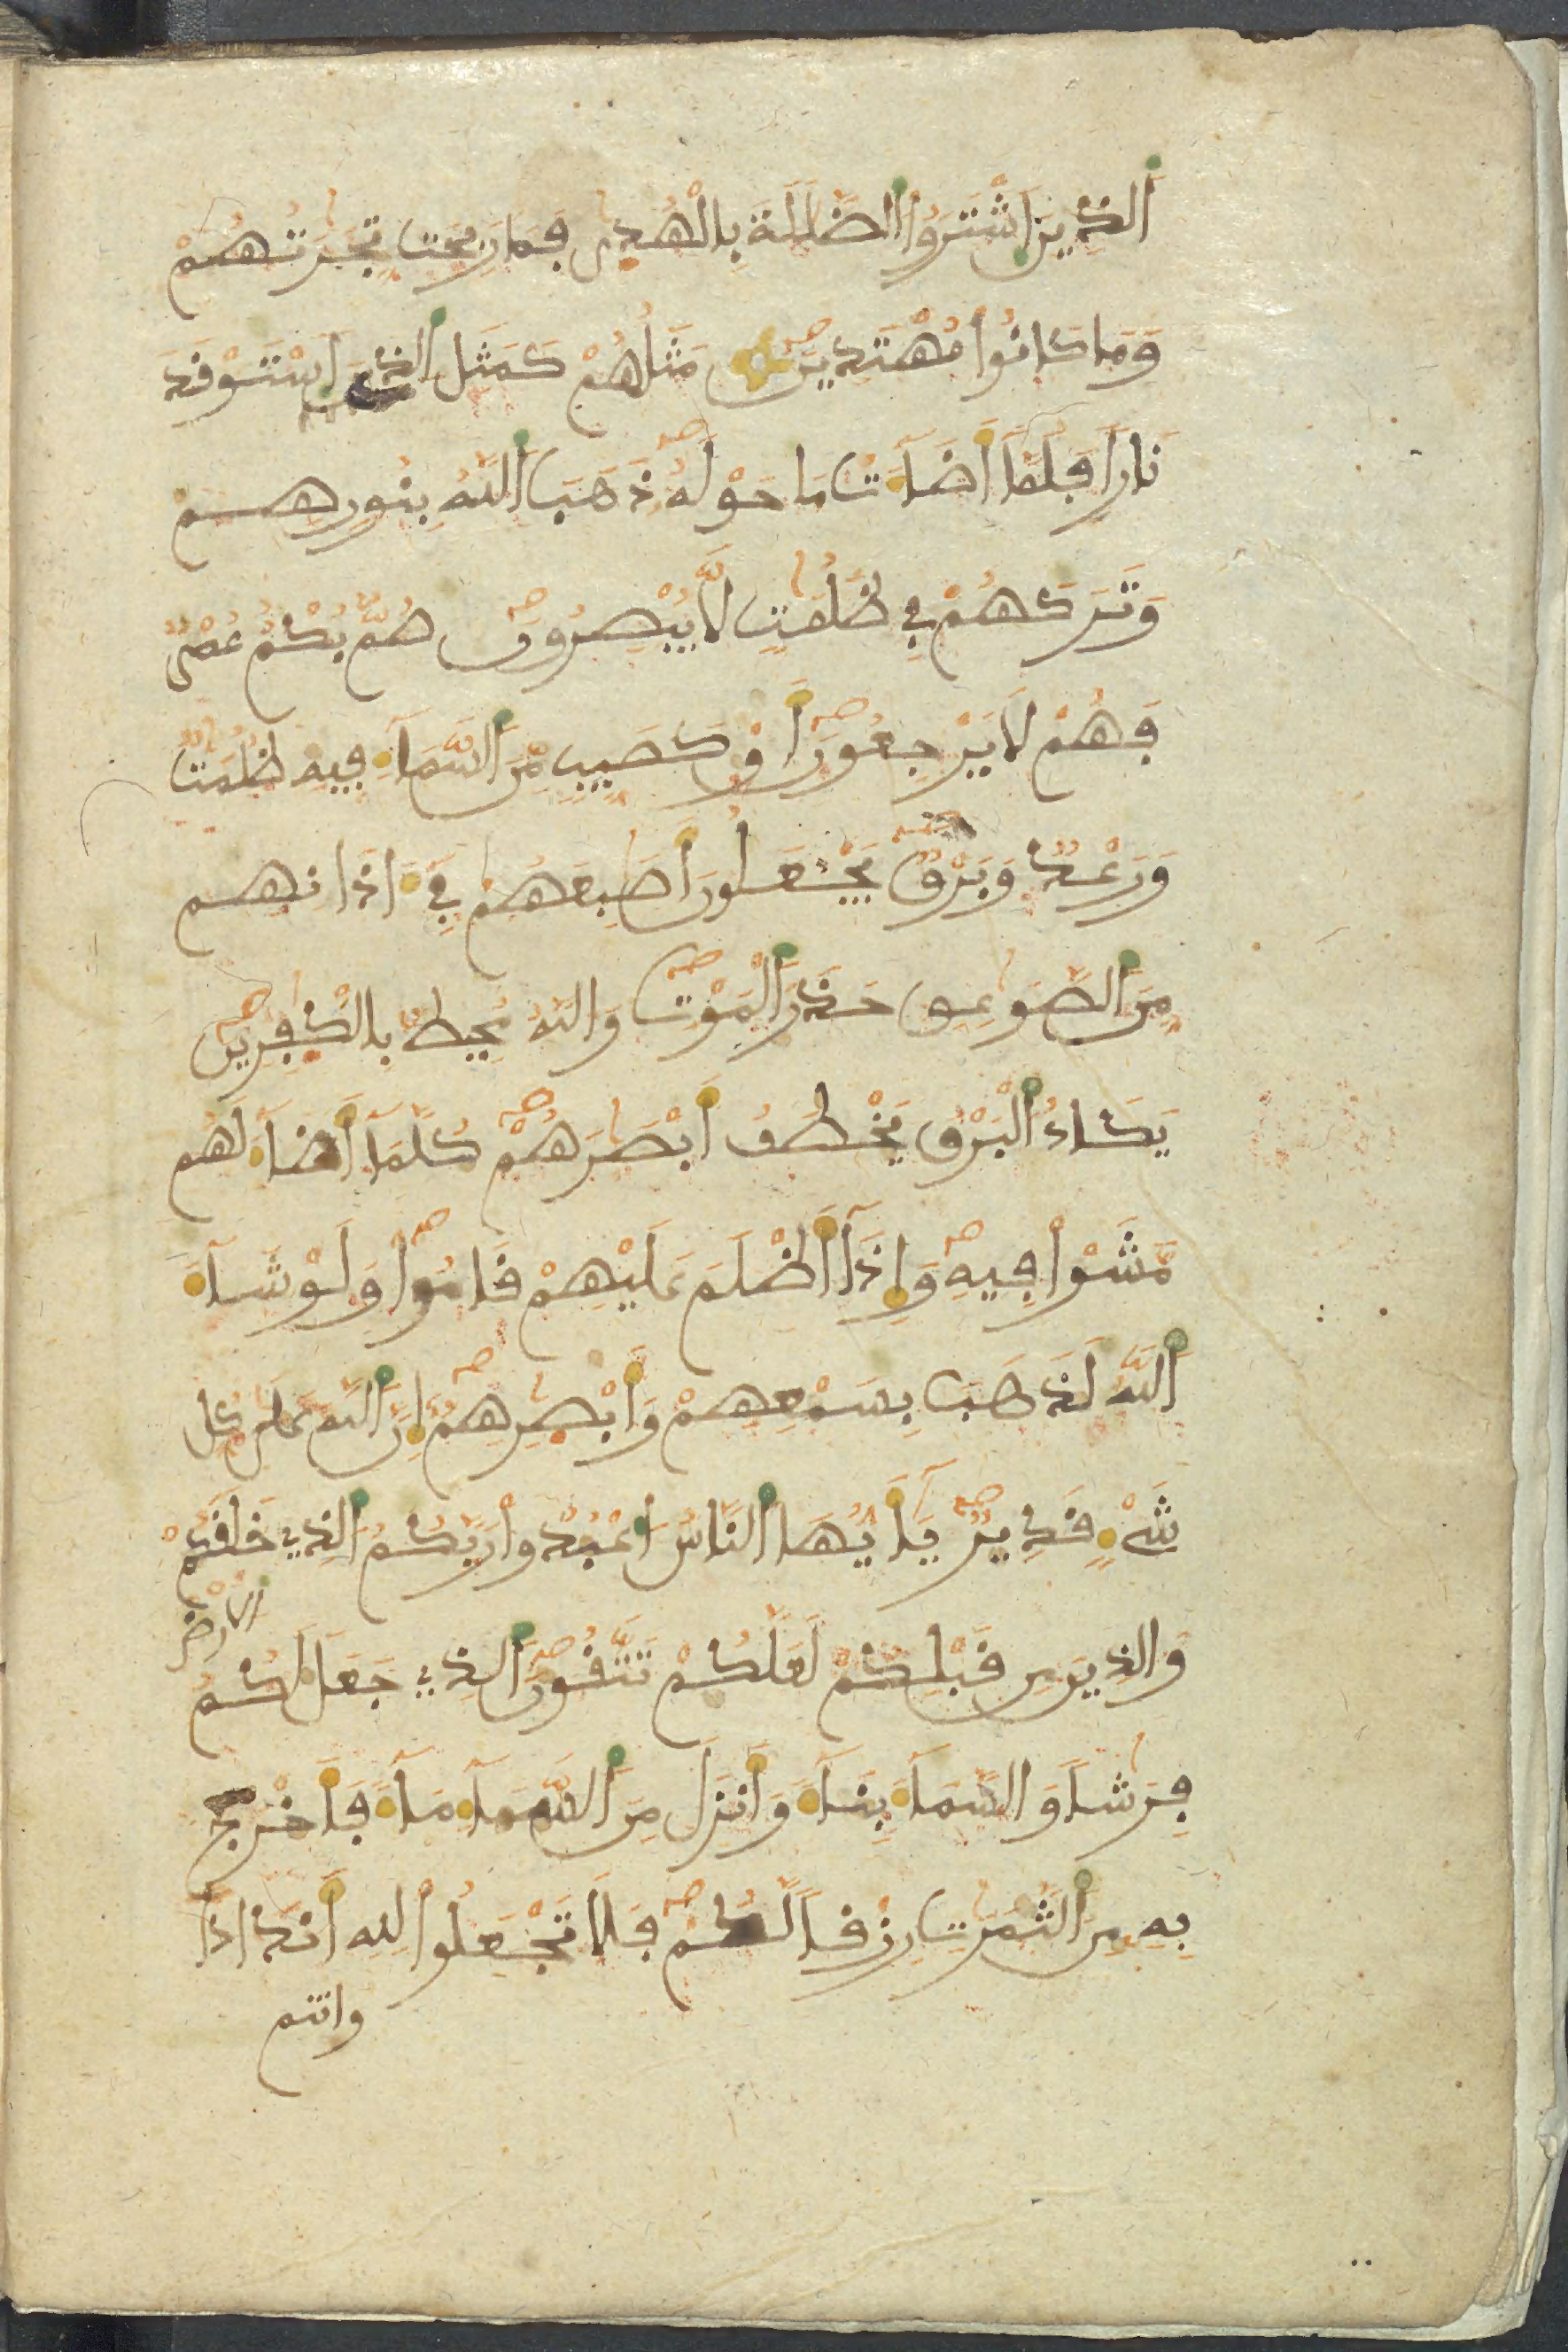 الذِينَ اشْتَرَوُا الضَّلَلَةَ بِالْهُدِى فَمَا رَبِحَت تِّجَرَتُهُمْ
وَمَا كَانُوا مُهْتَدِينَ مَثَلُهُمْ كَمَثَلِ الذِي اسْتَوْقَدَ
نَاراً فَلَمَّا أَضَآءَتْ مَا حَوْلَهُ ذَهَبَ اَللَّهُ بِنُورِهِمْ
وَتَرَكَهُمْ فِي ظُلُمَتٍ لَّا يُبْصِرُونَ صُمٌّ بُكْمٌ عُمْىٌ
فَهُمْ لَا يَرْجِعُونَ أَوْ كَصَيِّبٍ مِّنَ اَلسَّمَآءِ فِيهِ ظُلُمَتٌ
وَرَعْدٌ وَبَرْقٌ يَجْعَلُونَ أَصَبِعَهُمْ فِي ءَاذَانِهِم
مِّنَ اَلصَّوَعِقِ حَذَرَ اَلْمَوْتِ وَاللَّهُ مُحِيطٌ بِالْكَفِرِينَ
يَكَادُ اَلْبَرْقُ يَخْطَفُ أَبْصَرَهُمْ كُلَّمَآ أَضَآءَ لَهُم
مَّشَوْا فِيهِ وَإِذَآ أَظْلَمَ عَلَيْهِمْ قَامُوا وَلَوْ شَآءَ
اَللَّهُ لَذَهَبَ بِسَمْعِهِمْ وَأَبْصَرِهِمْ إِنَّ اَللَّهَ عَلَى كُلِّ
شَيْءٍ قَدِيرٌ يَأَيُّهَا اَلنَّاسُ اعْبُدُوا رَبَّكُمُ الذِي خَلَقَكُمْ
وَالذِينَ مِن قَبْلِكُمْ لَعَلَّكُمْ تَتَّقُونَ اَلذِي جَعَلَ لَكُمُ الْأَرْضَ
فِرَشاً وَالسَّمَآءَ بِنَآءً وَأَنزَلَ مِنَ اَلسَّمَآءِ مَآءً فَأَخْرَجَ
بِهِ مِنَ اَلثَّمَرَتِ رِزْقاً لَّكُمْ فَلَا تَجْعَلُوا لِلهِ أَندَاداً
وانتم